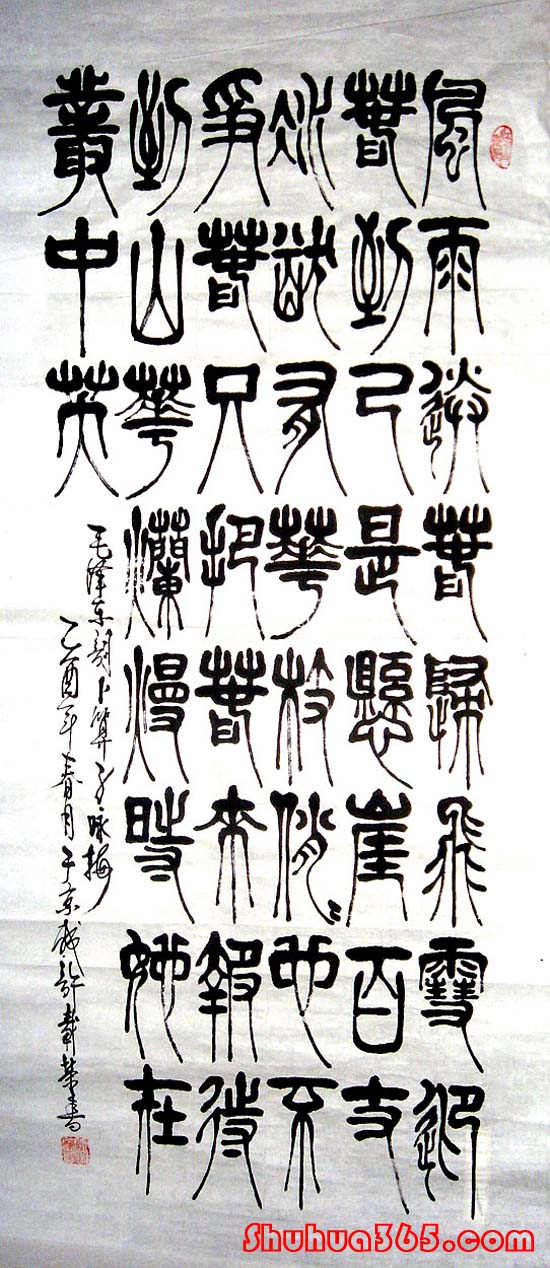 風雨送春歸飛雪迎
春到已是懸崖百丈
冰猶有華枝俏〻也不
爭春只把春來報待
到山華爛漫時她在
叢中笑
毛泽东詞卜算子咏梅
乙酉年春月于京城許書
Shuhua365.com